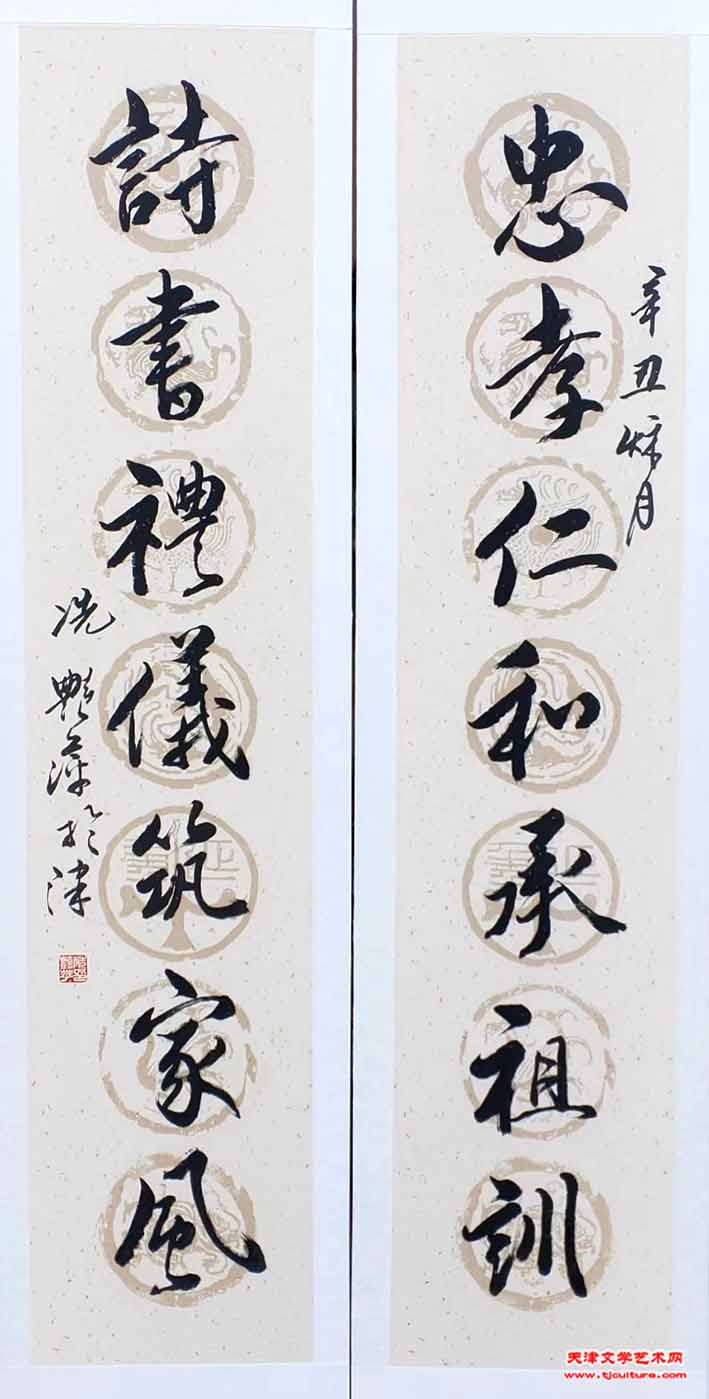 忠孝仁和承祖訓
辛丑秌月
詩書禮儀筑家風
冼艷萍於津
天津文学艺术网
www.tjculture.com